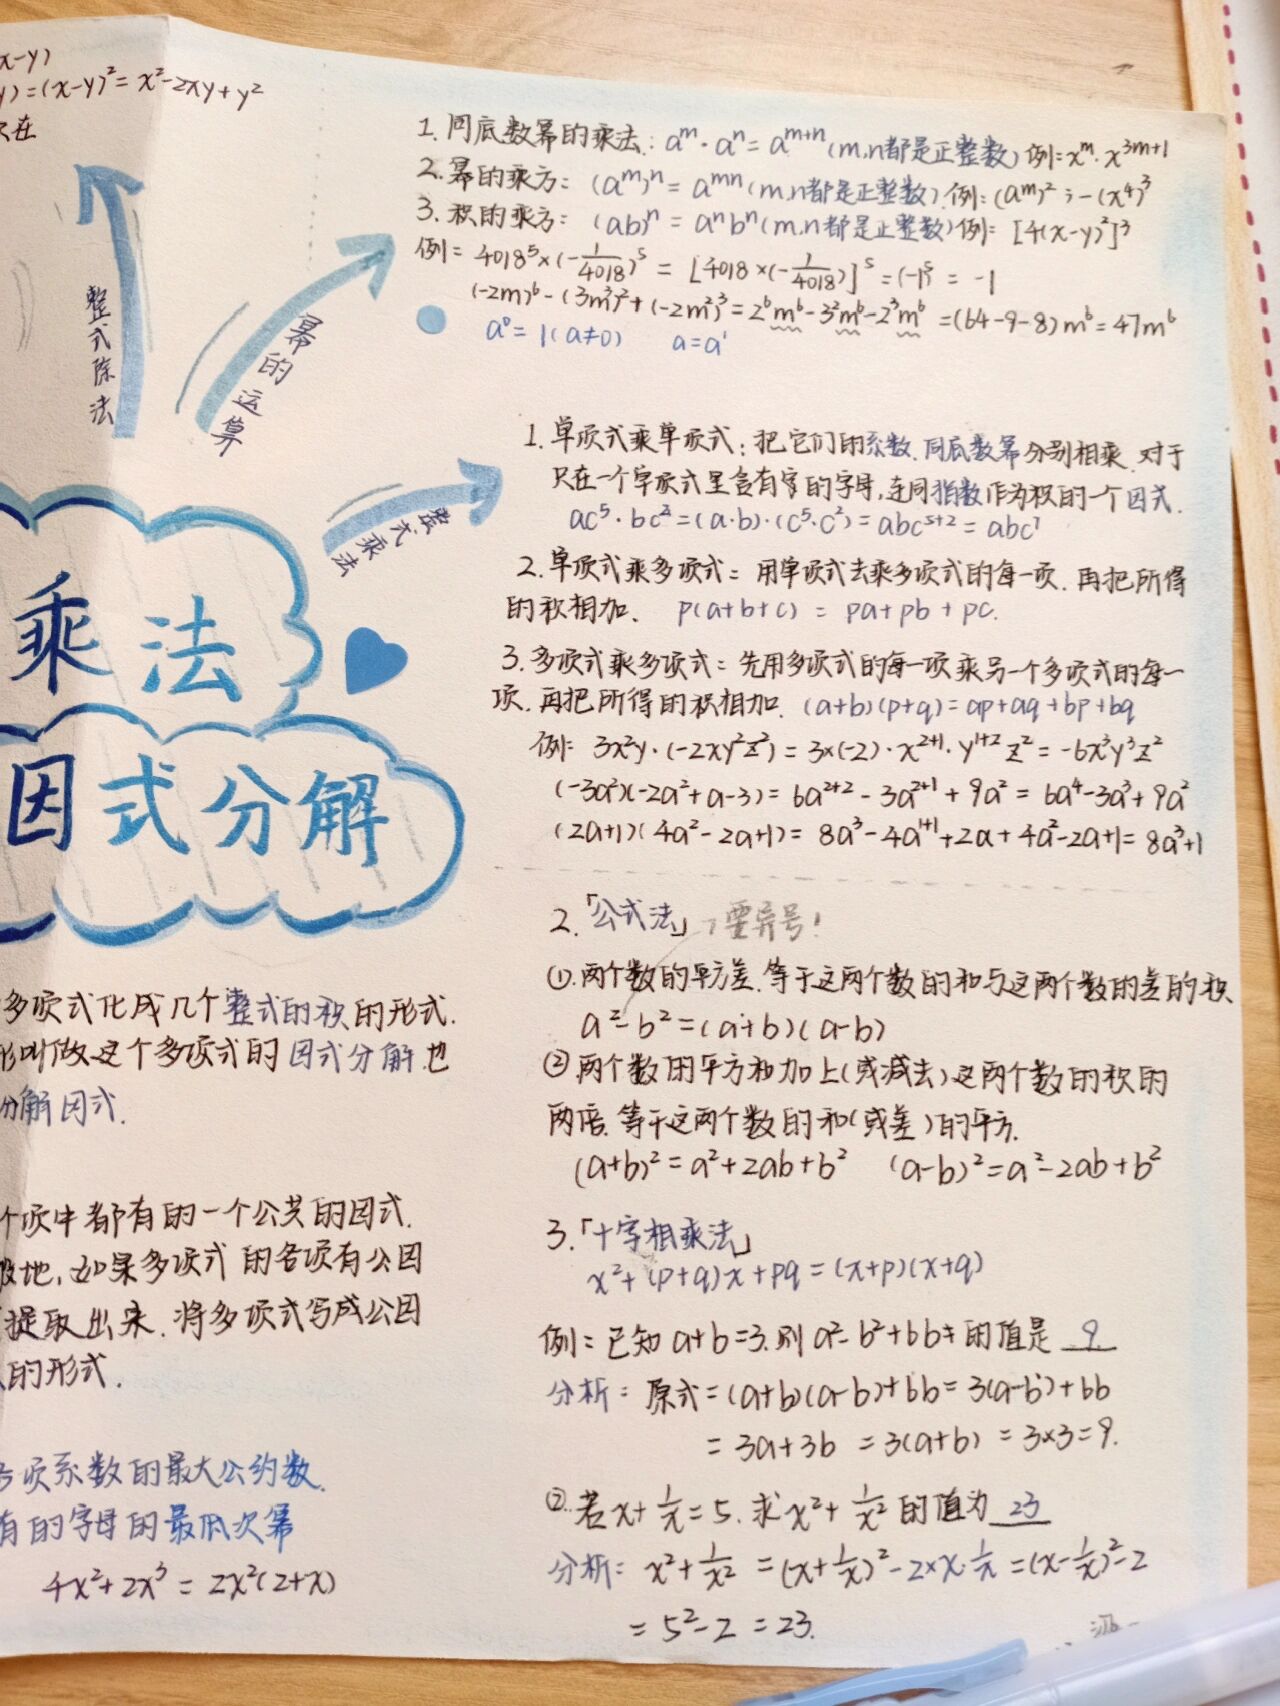 x-y)
y)=(x-y)²=x²-2xy+y²
只在
1. 同底数幂的乘法: aᵐ·aⁿ=aᵐ⁺ⁿ(m,n都是正整数) 例:xᵐ·x³ᵐ⁺¹
2. 幂的乘方: (aᵐ)ⁿ=aᵐⁿ(m,n都是正整数).例:(aᵐ)²;-(x⁴)³
3. 积的乘方: (ab)ⁿ=aⁿbⁿ(m,n都是正整数)例: [4(x-y)²]³
例: 4018⁵×(-1/4018)⁵=[4018×(-1/4018)]⁵=(-1)⁵=-1
(-2m)⁶-(3m³)²+(-2m²)³=2⁶m⁶-3²m⁶-2³m⁶=(64-9-8)m⁶=47m⁶
a⁰=1(a≠0) a=a¹
整式除法
幂的运算
整式乘法
1. 单项式乘单项式: 把它们的系数.同底数幂分别相乘.对于
只在一个单项式里含有的字母,连同指数作为积的一个因式.
ac⁵·bc²=(a·b)·(c⁵·c²)=abc⁵⁺²=abc⁷
2. 单项式乘多项式: 用单项式去乘多项式的每一项.再把所得
的积相加. p(a+b+c)=pa+pb+pc.
3. 多项式乘多项式: 先用多项式的每一项乘另一个多项式的每一
项.再把所得的积相加. (a+b)(p+q)=ap+aq+bp+bq
例: 3x²y·(-2xy²z²)=3×(-2)·x²⁺¹·y¹⁺²z²=-6x³y³z²
(-3a²)(-2a²+a-3)=6a²⁺²-3a²⁺¹+9a²=6a⁴-3a³+9a²
(2a+1)(4a²-2a+1)=8a³-4a¹⁺¹+2a+4a²-2a+1=8a³+1
乘法
因式分解
多项式化成几个整式的积的形式.
形叫做这个多项式的因式分解.也
分解因式.
个项中都有的一个公共的因式.
般地,如果多项式的各项有公因
提取出来.将多项式写成公因
的形式.
各项系数的最大公约数.
有的字母的最低次幂
4x²+2x³=2x²(2+x)
2.「公式法」,要异号!
①.两个数的平方差.等于这两个数的和与这两个数的差的积
a²-b²=(a+b)(a-b)
②.两个数的平方和加上(或减去)这两个数的积的
两倍.等于这两个数的和(或差)的平方.
(a+b)²=a²+2ab+b² (a-b)²=a²-2ab+b²
3.「十字相乘法」
x²+(p+q)x+pq=(x+p)(x+q)
例: 已知a+b=3.则a²-b²+6b 的值是 9
分析: 原式=(a+b)(a-b)+6b=3(a-b)+6b
=3a+3b=3(a+b)=3×3=9.
②.若x+1/x=5.求x²+1/x²的值为 23
分析: x²+1/x²=(x+1/x)²-2×x·1/x=(x-1/x)²-2
=5²-2=23.